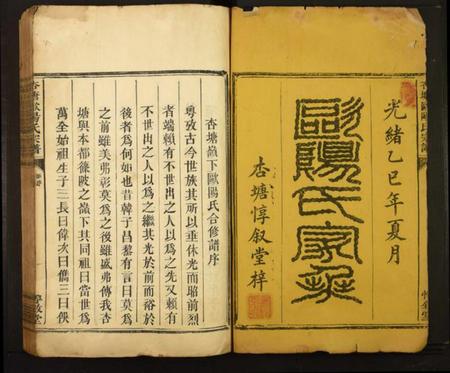 光緒乙巳年夏月
歐陽氏家乘
杏塘惇叙堂梓
杏塘歐陽氏宗譜
杏塘嶺下歐陽氏合修譜序
粵攷古今世族其所以垂休光而堦前烈
者端賴有不世出之人以為之先又賴有
不世出之人以為之繼其光於前而裕於
後者為何如也昔韓子昌黎有言曰莫為
之前雖美弗彰莫為之後雖盛弗傳我杏
塘與本都篠陂之嶺下其同祖曰當世為
萬全始祖生子三長曰偉次曰儁三曰俁